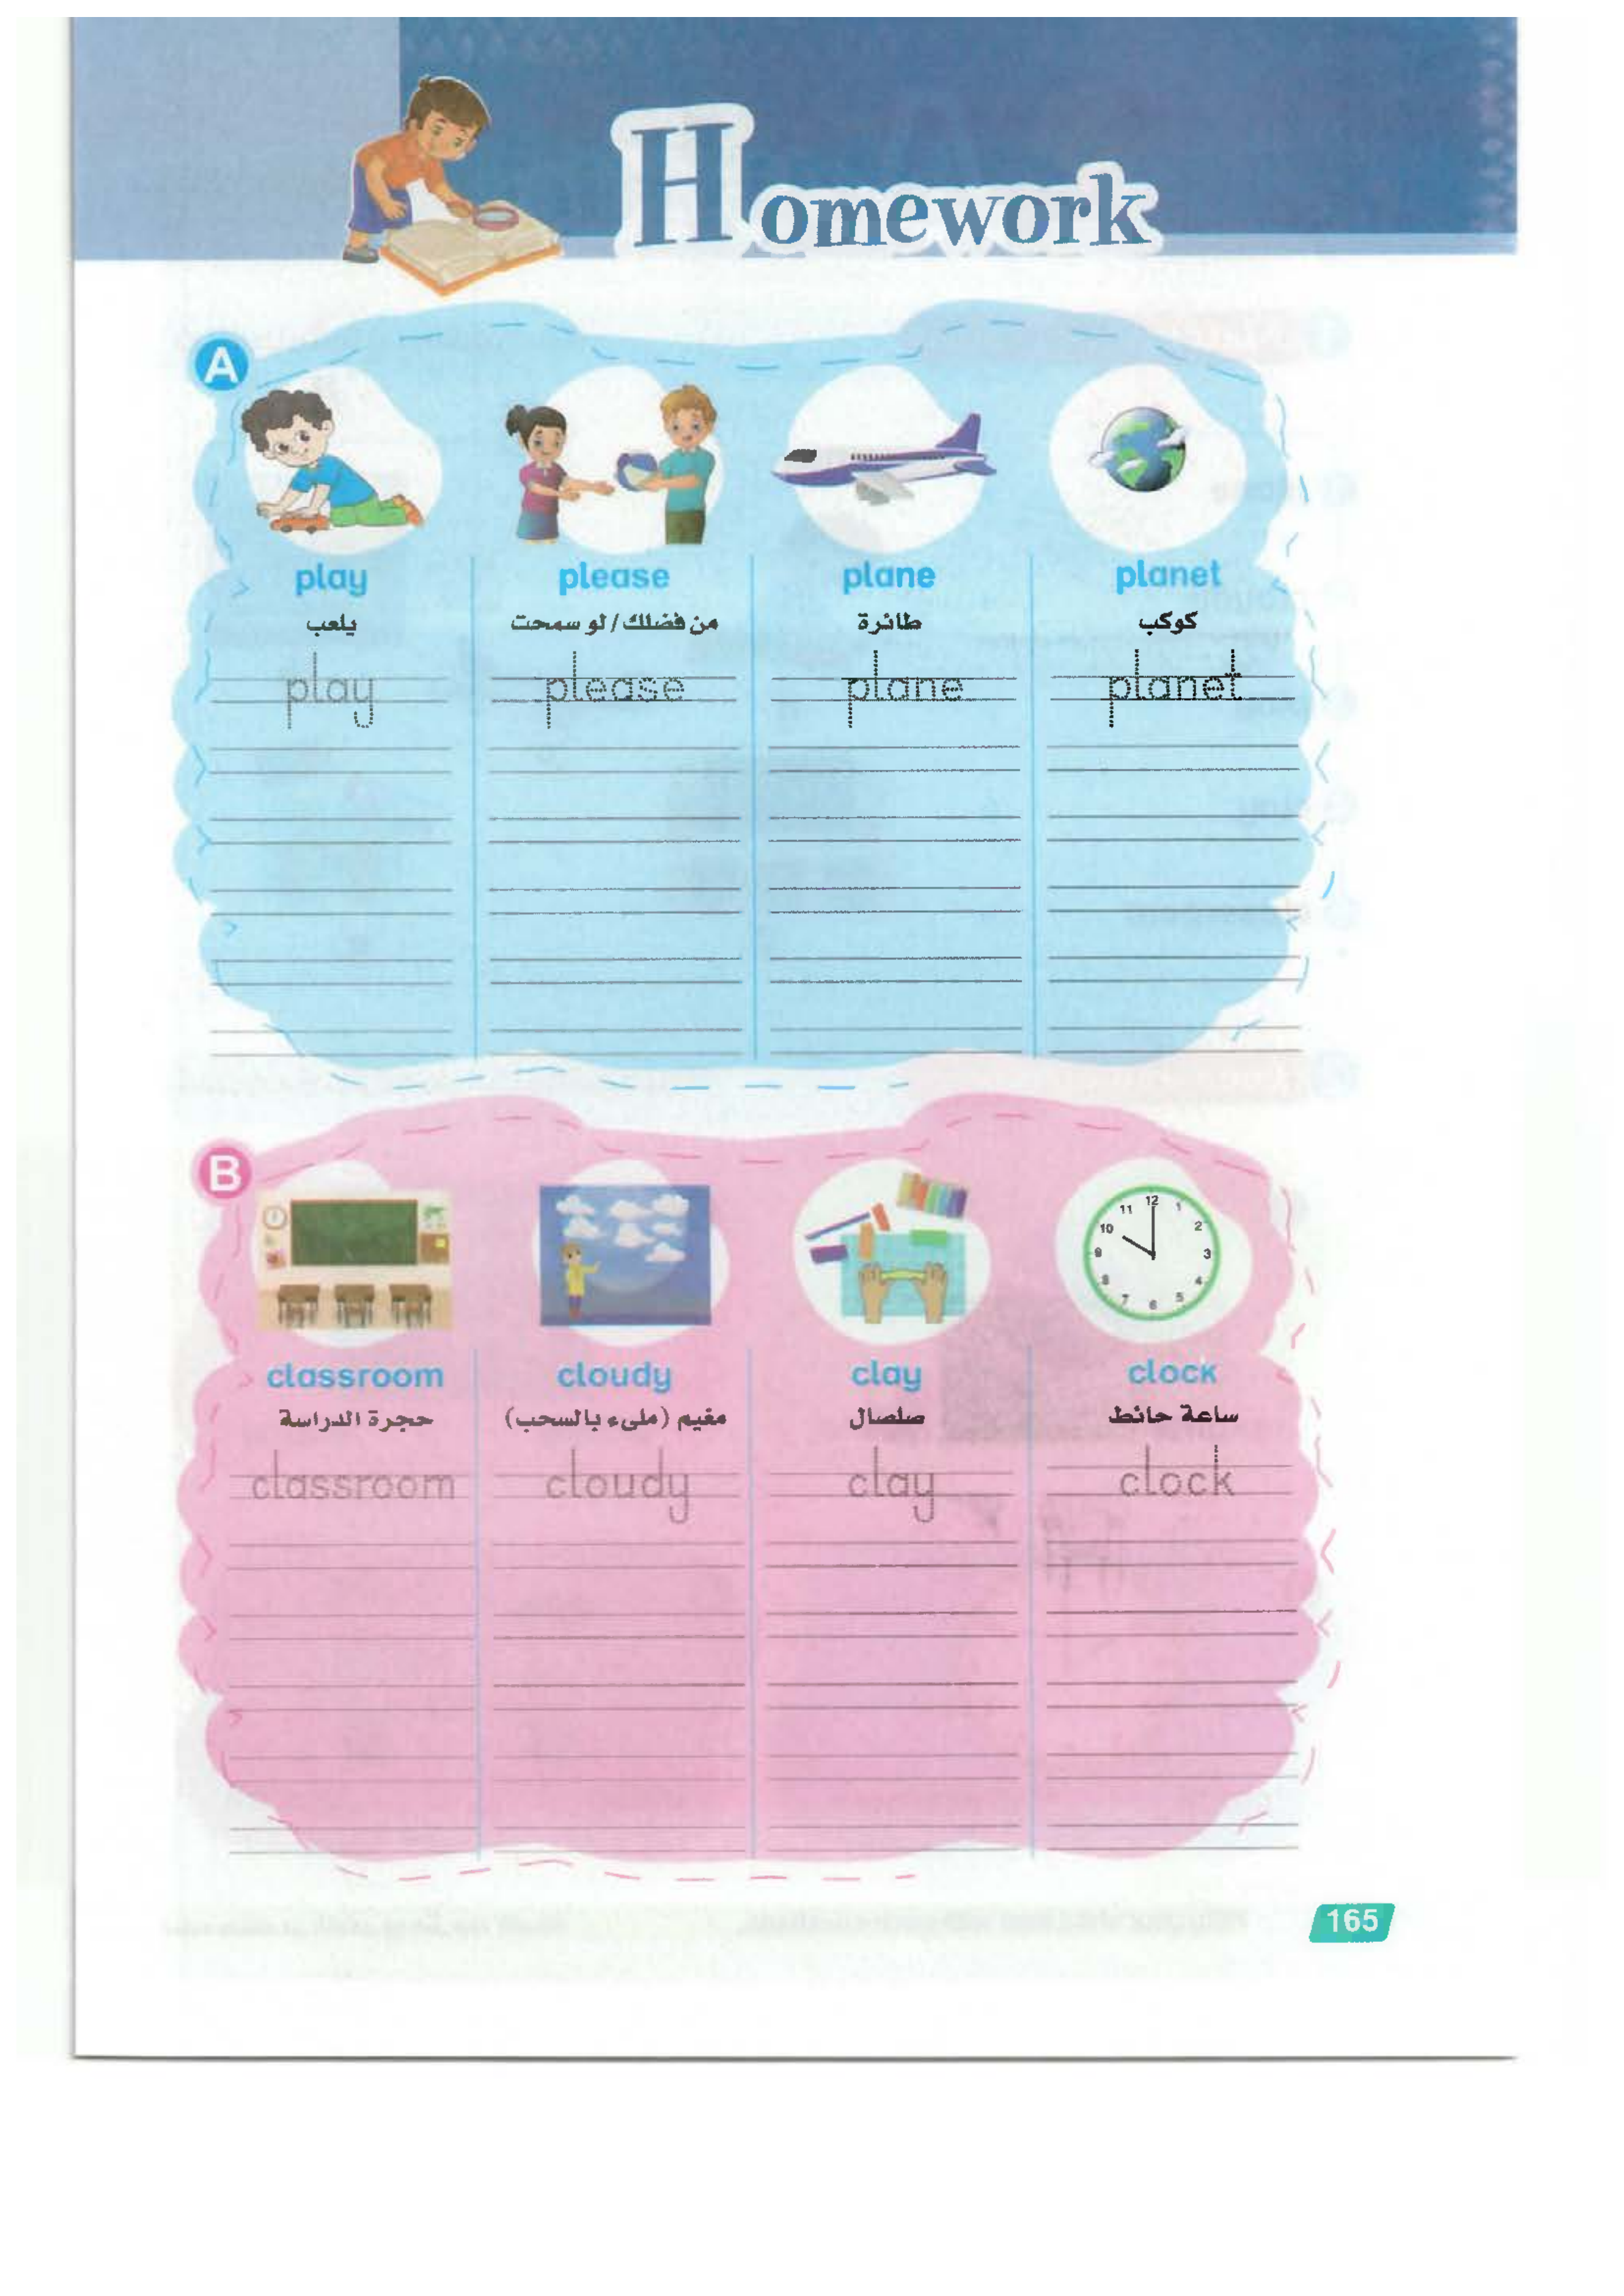 Homework
A
play please plane planet
يلعب من فضلك / لو سمحت طائرة كوكب
play please plane planet
B
12
11 1
10 2
9 3
8 4
7 6 5
classroom cloudy clay clock
حجرة الدراسة مغيم (ملىء بالسحب) صلصال ساعة حائط
classroom cloudy clay clock
165